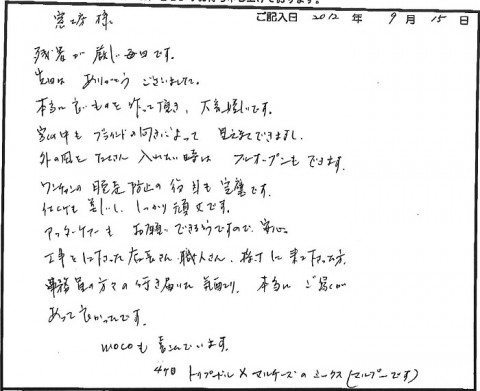 ご記入日 2012 年 9 月 15 日
窓工房 様
残暑が厳しい毎日です。
先日は ありがとう ございました。
本当に良いものを作って頂き、大変嬉しいです。
家の中も ブラインドの向きによって 目かくしできますし、
外の風を たくさん 入れたい時は フルオープンも できます。
ワンチャンの 脱走 防止の役目も 完璧です。
仕上げも 美しいし、しっかり 頑丈です。
アフターケアーも お願い できそうですので、安心。
工事をして下さった 店長さん、職人さん、格子に来て下さった方、
事務員の方々の 行き届いた 気配り、本当に ご縁が
あって良かったです。
mocoも 喜んでいます。
4才 トイプードル × マルチーズの ミックス(マルプーです)